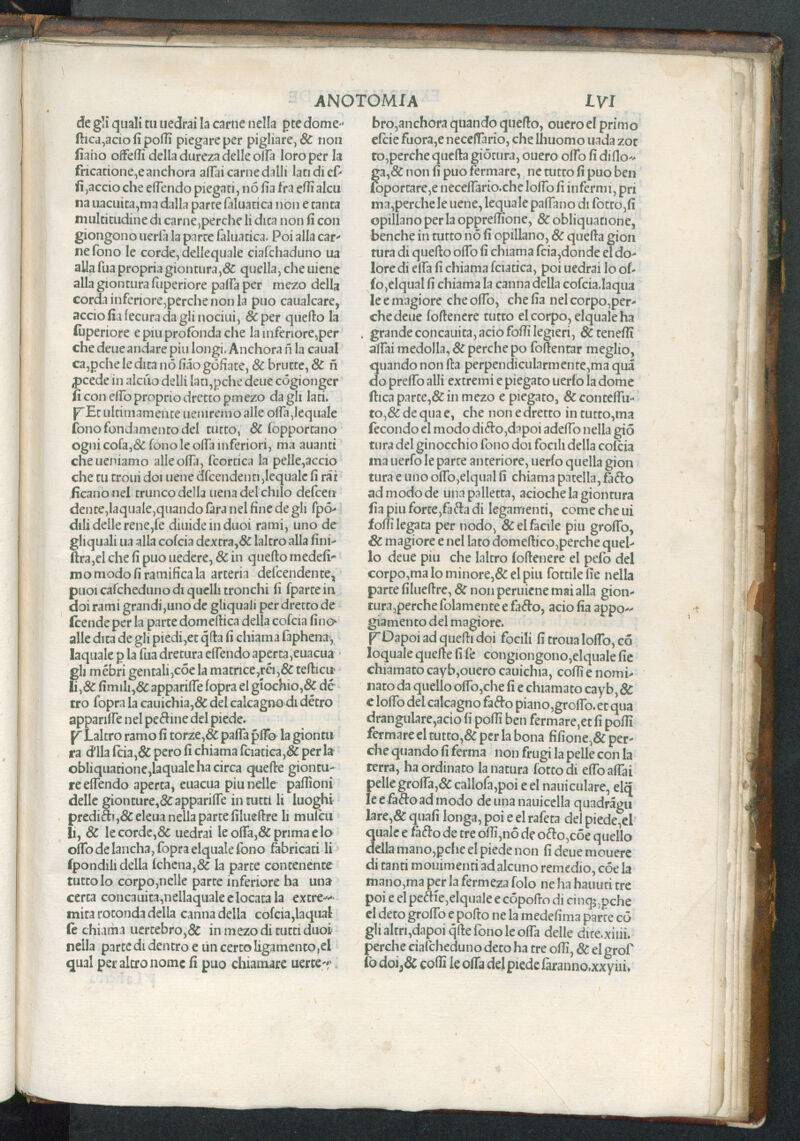 ANOTOMIA
LVI
de gli quali tu uedrai la carne nella pte dome-
ſtica,acio ſi poſſi piegare per pigliare, & non
ſiano offeſſi della dureza delle oſſa loro per la
fricatione,e anchora aſſai carne dalli lati di eſ-
ſi,accio che eſſendo piegati, nō ſia fra eſſi alcu
na uacuita,ma dalla parte ſaluatica non e tanta
multitudine di carne,perche li dita non ſi con
giongono uerſa la parte ſaluatica. Poi alla car-
ne ſono le corde, dellequale ciaſchaduno ua
alla ſua propria giontura,& quella, che uiene
alla giontura ſuperiore paſſa per mezo della
corda inferiore,perche non la puo caualcare,
accio ſia ſecura da gli nociui, & per queſto la
ſuperiore e piu profonda che la inferiore,per
che deue andare piu longi. Anchora ñ la caual
ca,pche le dita nō ſiāo gōfiate, & brutte, & ñ
pcede in alcūo delli lati,pche deue cōgionger
ſi con eſſo proprio dretto pmezo da gli lati.
Et ultimamente ueniremo alle oſſa,lequale
ſono fondamento del tutto, & ſopportano
ogni coſa,& ſono le oſſa inferiori, ma auanti
che ueniamo alle oſſa, ſcortica la pelle,accio
che tu troui doi uene dſcendenti,lequale ſi rāi
ficano nel trunco della uena del chilo deſcen
dente,laquale,quando ſara nel fine de gli ſpō-
dili delle rene,ſe diuide in duoi rami, uno de
gliquali ua alla coſcia dextra,& laltro alla ſini-
ſtra,el che ſi puo uedere, & in queſto medeſi-
mo modo ſi ramifica la arteria deſcendente,
puoi caſcheduno di quelli tronchi ſi ſparte in
doi rami grandi,uno de gliquali per dretto de
ſcende per la parte domeſtica della coſcia ſino
alle dita de gli piedi,et q̄ſta ſi chiama ſaphena,
laquale p la ſua dretura eſſendo aperta,euacua
gli mēbri gentali,cōe la matrice,rēi,& teſticu
li,& ſimili,& appariſſe ſopra el giochio,& dē
tro ſopra la cauichia,& del calcagno di dētro
appariſſe nel pectine del piede.
Laltro ramo ſi torze,& paſſa pſſo la giontu
ra d'lla ſcia,& pero ſi chiama ſciatica,& per la
obliquatione,laquale ha circa queſte giontu-
re eſſendo aperta, euacua piu nelle paſſioni
delle gionture,& appariſſe in tutti li luoghi
predicti,& eleua nella parte ſilueſtre li muſcu
li, & le corde,& uedrai le oſſa,& prima e lo
oſſo de lancha, ſopra elquale ſono fabricati li
ſpondili della ſchena,& la parte contenente
tutto lo corpo,nelle parte inferiore ha una
certa concauita,nellaquale e locata la extre-
mita rotonda della canna della coſcia,laqual
ſe chiama uertebro,& in mezo di tutti duoi
nella parte di dentro e un certo ligamento,el
qual per altro nome ſi puo chiamare uerte-
bro,anchora quando queſto, ouero el primo
eſcie fuora,e neceſſario, che lhuomo uada zot
to,perche queſta giōtura, ouero oſſo ſi diſlo-
ga,& non ſi puo fermare, ne tutto ſi puo ben
ſoportare,e neceſſario.che loſſo ſi infermi, pri
ma,perche le uene, lequale paſſano di ſotto,ſi
opillano per la oppreſſione, & obliquatione,
benche in tutto nō ſi opillano, & queſta gion
tura di queſto oſſo ſi chiama ſcia,donde el do-
lore di eſſa ſi chiama ſciatica, poi uedrai lo oſ-
ſo,elqual ſi chiama la canna della coſcia.laqua
le e magiore che oſſo, che ſia nel corpo,per-
che deue ſoſtenere tutto el corpo, elquale ha
grande concauita, acio foſſi legieri, & teneſſi
aſſai medolla, & perche po ſoſtentar meglio,
quando non ſta perpendicularmente,ma quā
do preſſo alli extremi e piegato uerſo la dome
ſtica parte,& in mezo e piegato, & conteſſu-
to,& de qua e, che non e dretto in tutto,ma
ſecondo el modo dicto,dapoi adeſſo nella giō
tura del ginocchio ſono doi focili della coſcia
ma uerſo le parte anteriore, uerſo quella gion
tura e uno oſſo,elqual ſi chiama patella, facto
ad modo de una palletta, acioche la giontura
ſia piu forte,facta di legamenti, come che ui
foſſi legata per nodo, & el facile piu groſſo,
& magiore e nel lato domeſtico,perche quel-
lo deue piu che laltro ſoſtenere el peſo del
corpo,ma lo minore,& el piu ſottile ſie nella
parte ſilueſtre, & non peruiene mai alla gion-
tura,perche ſolamente e facto, acio ſia appo-
giamento del magiore.
Dapoi ad queſti doi focili ſi troua loſſo, cō
loquale queſte ſi ſe congiongono,elquale ſie
chiamato cayb,ouero cauichia, coſſi e nomi-
nato da quello oſſo,che ſi e chiamato cayb, &
e loſſo del calcagno facto piano,groſſo.et qua
drangulare,acio ſi poſſi ben fermare,et ſi poſſi
fermare el tutto,& per la bona fiſione,& per-
che quando ſi ferma non frugi la pelle con la
terra, ha ordinato la natura ſotto di eſſo aſſai
pelle groſſa,& calloſa,poi e el nauiculare, elq̄
le e facto ad modo de una nauicella quadrāgu
lare,& quaſi longa, poi e el raſeta del piede,el
quale e facto de tre oſſi,nō de octo,cōe quello
della mano,pche el piede non ſi deue mouere
di tanti mouimenti ad alcuno remedio, cōe la
mano,ma per la fermeza ſolo ne ha hauuti tre
poi e el pectīe,elquale e cōpoſto di cinq;,pche
el deto groſſo e poſto ne la medeſima parte cō
gli altri,dapoi q̄ſte ſono le oſſa delle dite.xiiii.
perche ciaſcheduno deto ha tre oſſi, & el groſ
ſo doi,& coſſi le oſſa del piede ſaranno.xxviii.